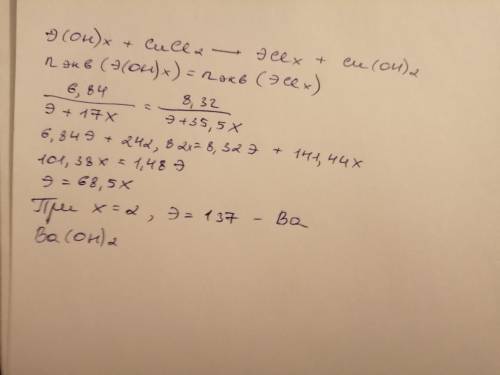 Э(OH)x + CuCl2 → ЭClx + Cu(OH)2
nэкв (Э(OH)x) = nэкв (ЭClx)
6,84 / Э + 17x = 8,32 / Э + 35,5x
6,84Э + 242,82x = 8,32Э + 141,44x
101,38x = 1,48Э
Э = 68,5x
При x = 2, Э = 137 - Ba
Ba(OH)2